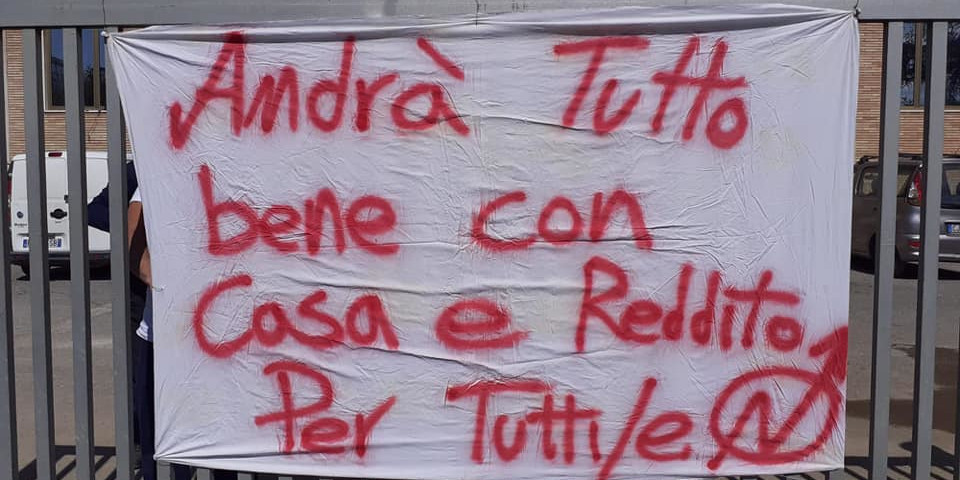 Andrà Tutto
bene con
Casa e Reddito
Per Tutti/e